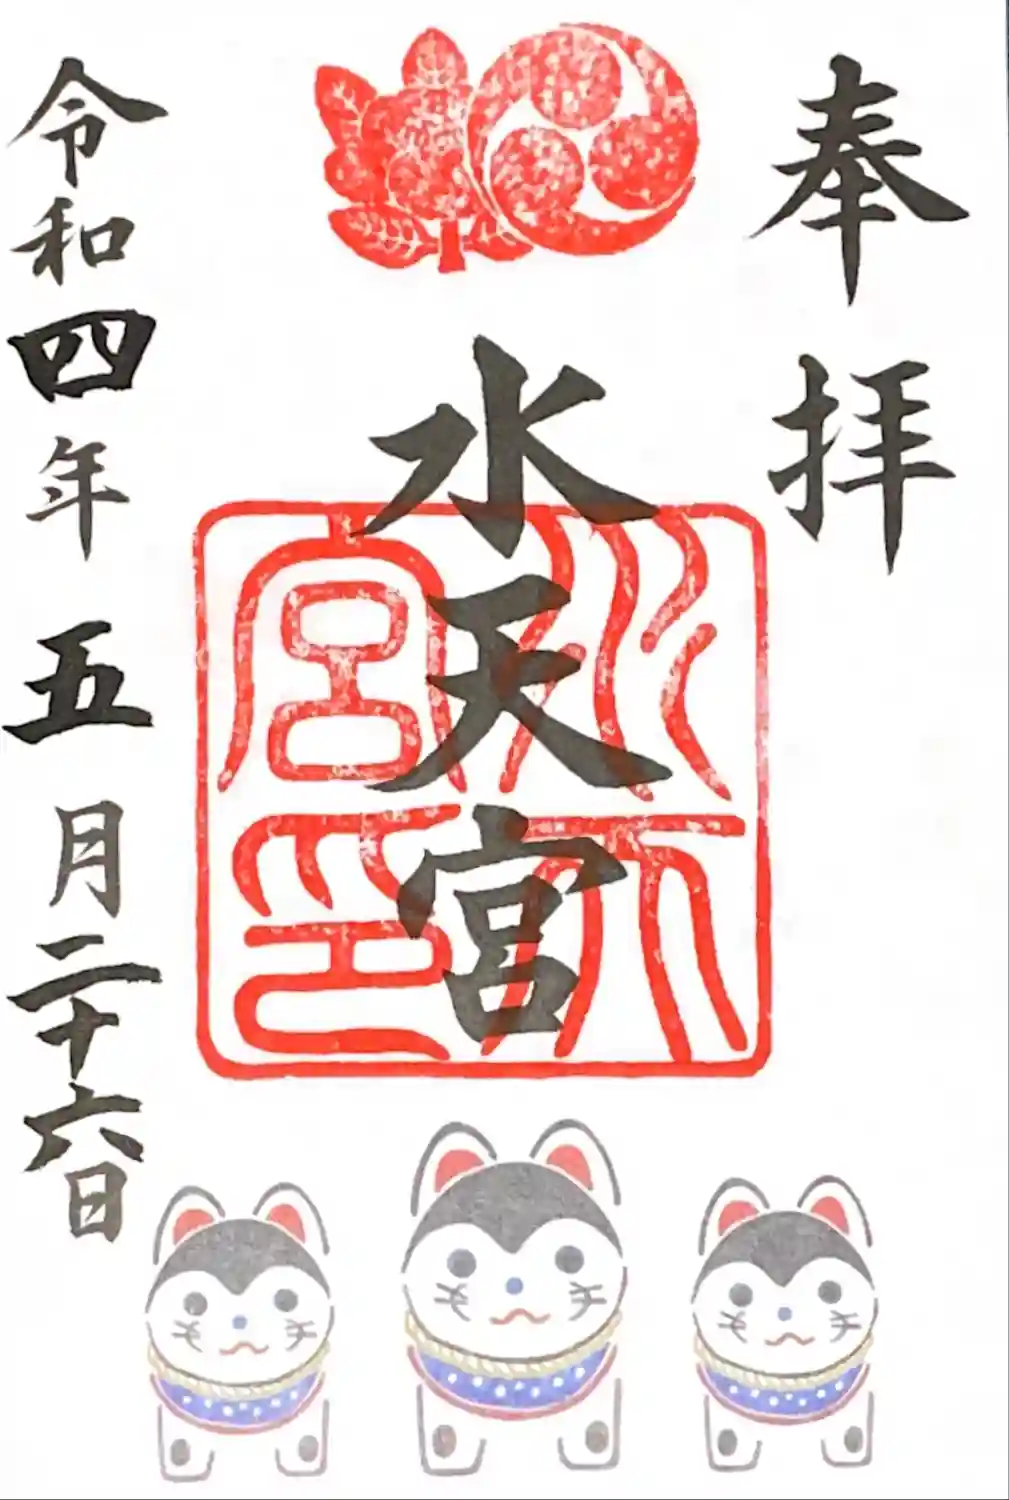 奉拝
水天宮
水天宮印
令和四年五月二十六日